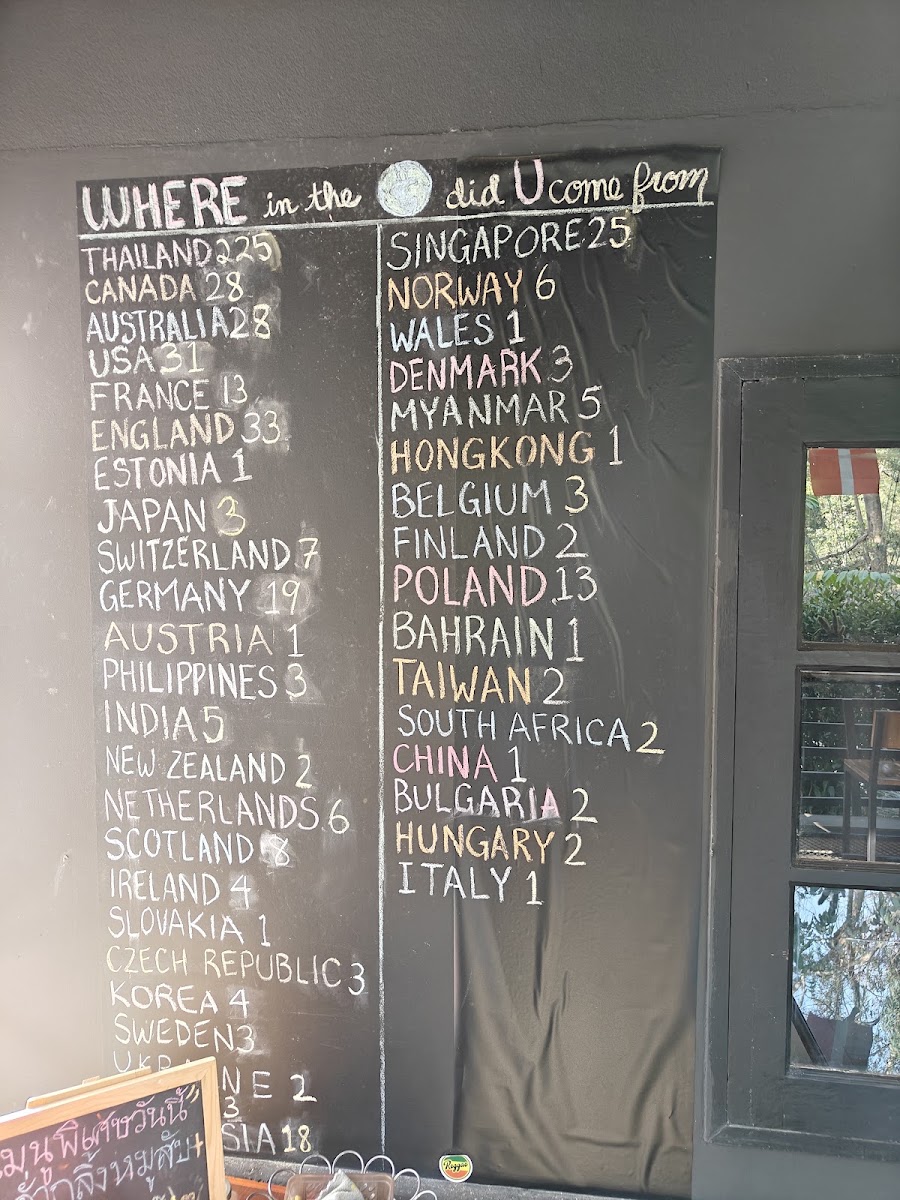 WHERE in the did U come from
THAILAND 225
CANADA 28
AUSTRALIA 28
USA 31
FRANCE 13
ENGLAND 33
ESTONIA 1
JAPAN 3
SWITZERLAND 7
GERMANY 19
AUSTRIA 1
PHILIPPINES 3
INDIA 5
NEW ZEALAND 2
NETHERLANDS 6
SCOTLAND 8
IRELAND 4
SLOVAKIA 1
CZECH REPUBLIC 3
KOREA 4
SWEDEN 3
NE 2
3
SIA 18
SINGAPORE 25
NORWAY 6
WALES 1
DENMARK 3
MYANMAR 5
HONGKONG 1
BELGIUM 3
FINLAND 2
POLAND 13
BAHRAIN 1
TAIWAN 2
SOUTH AFRICA 2
CHINA 1
BULGARIA 2
HUNGARY 2
ITALY 1
มนูพิเศษวันนี้
กลิ้งหมูสับ
Reggae